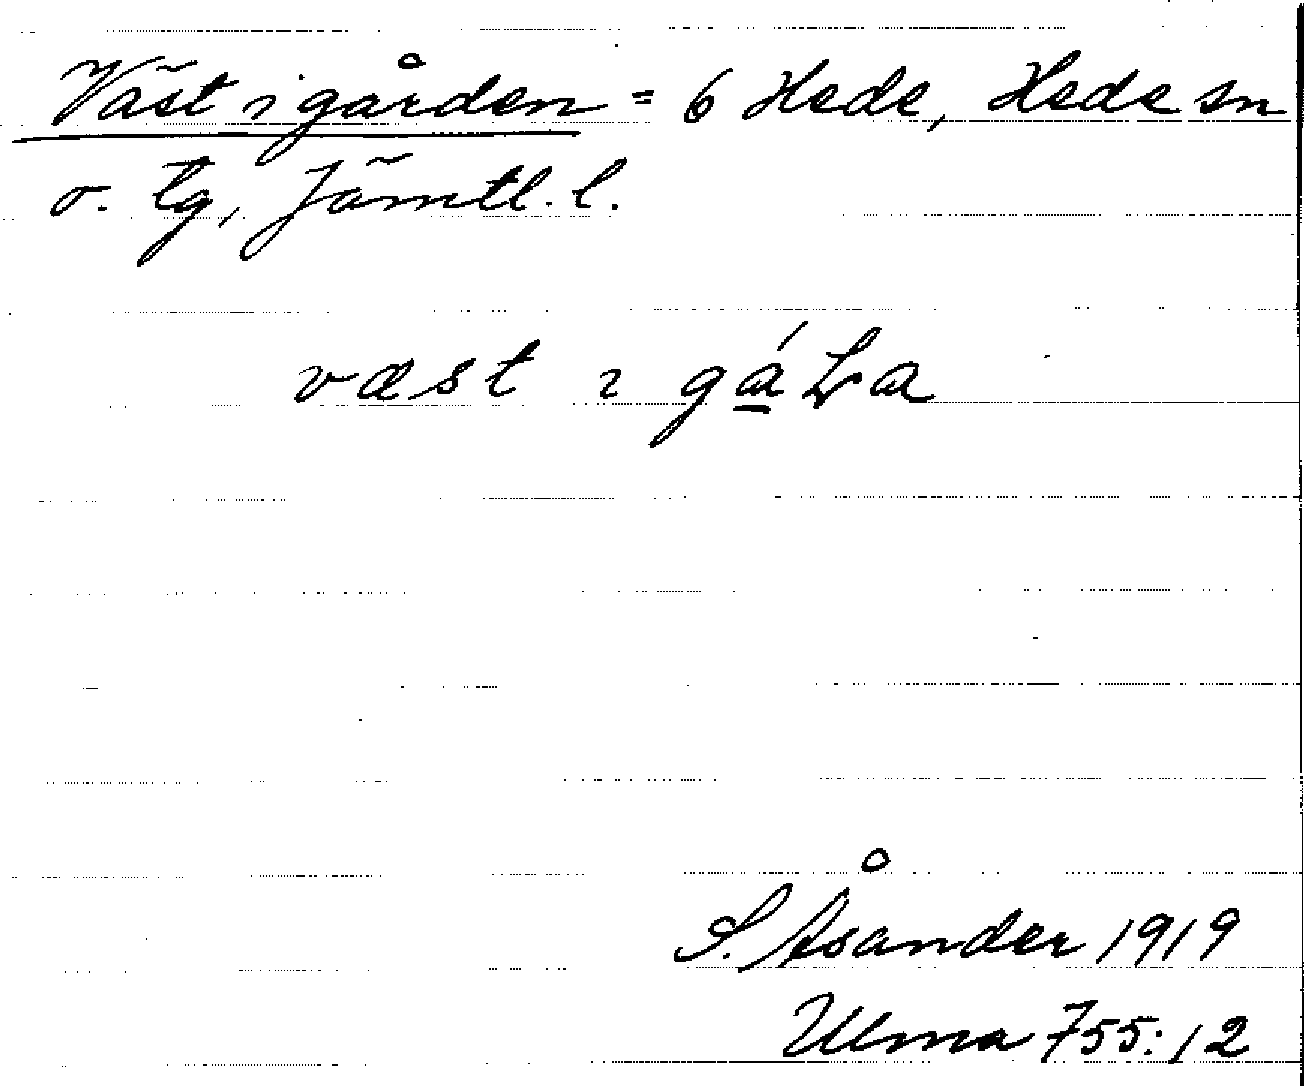 Väst i gården = 6 Hede, Hede sn
o. tg, Jämtl. l.
væst ı gáLa
S. Åsander 1919
Ulma 755:12